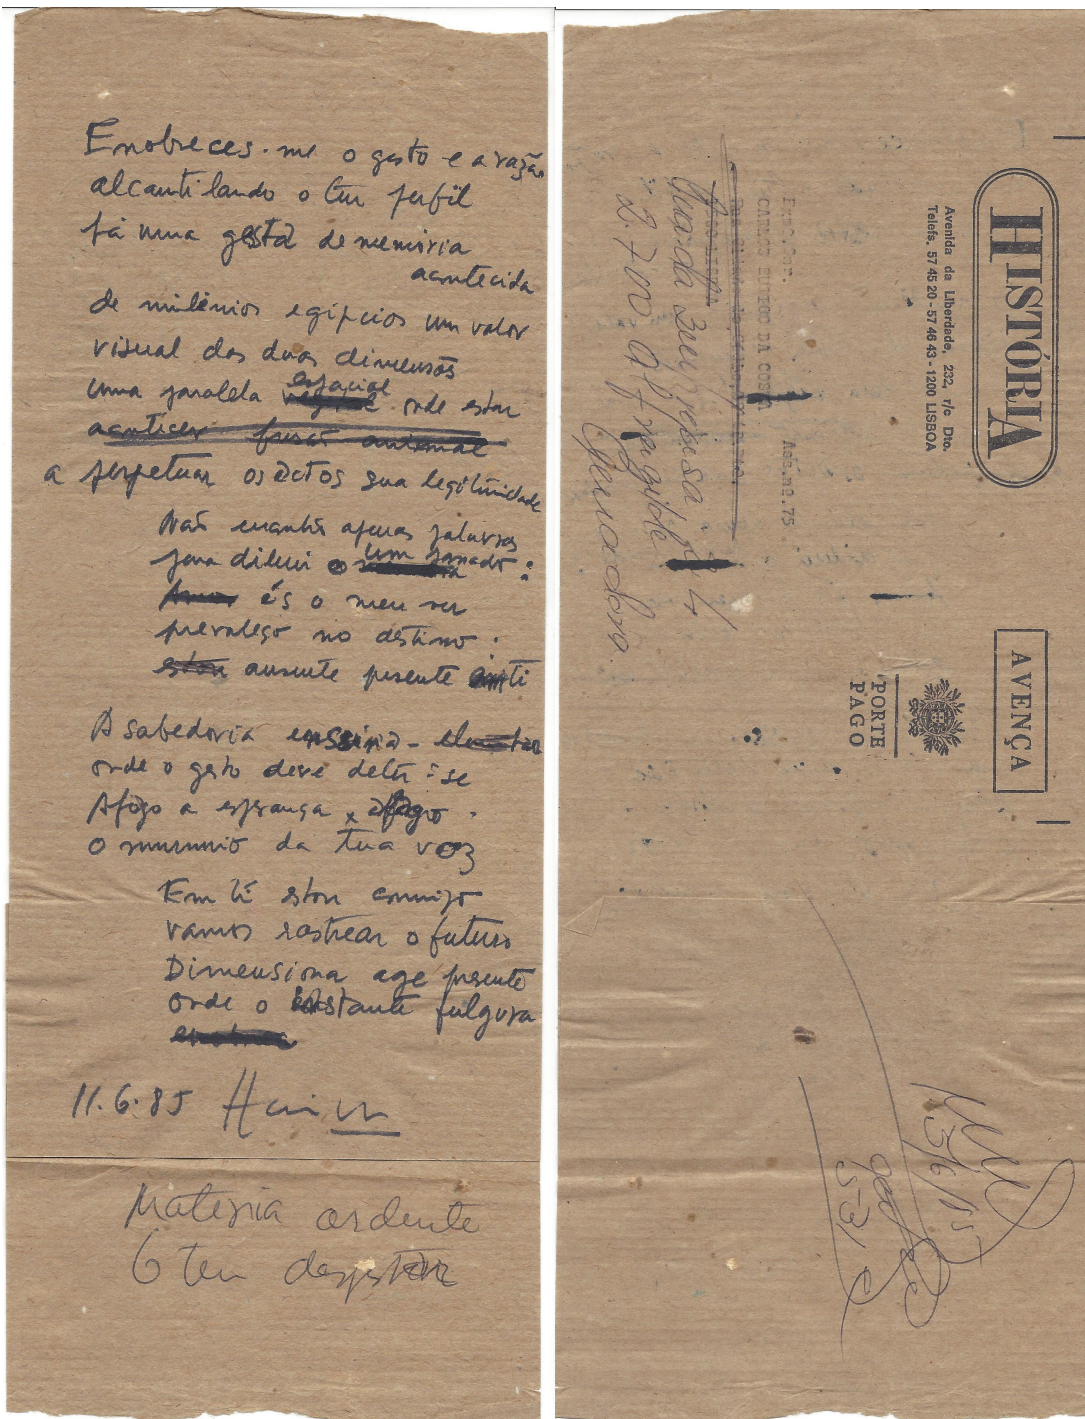 Enobreces-me o gesto e a razão
alcantilando o teu perfil
já uma gesta de memória
acontecida
de milénios egípcios um valor
visual das duas dimensões
uma paralela espacial onde estar
acontecer fusão
a perpetuar os actos sua legitimidade
Não encontro apenas palavras
para diluir o um passado:
Amor és o meu ser
prevaleço no destino.
estou ausente presente em ti
A sabedoria ensina-
onde o gesto deve deter-se
Afogo a esperança, afago
o murmúrio da tua voz
Em ti estou comigo
vamos rastrear o futuro
Dimensiona age presente
onde o instante fulgura
11.6.85
Materia ardente
6 teu despertar
HISTÓRIA
Avenida da Liberdade, 232, r/c Dto.
Telefs. 57 45 20-57 46 43 - 1200 LISBOA
Exmo.Snr.
CARLOS EURICO DA COSTA
Ass.nº.75
2.700 Alfragide
AVENÇA
PORTE
PAGO
13/6/85
531